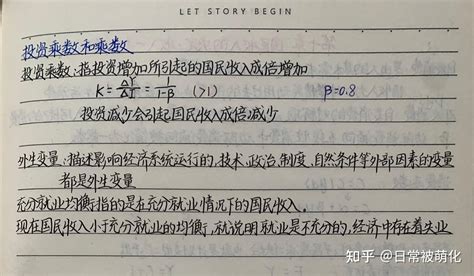 LET STORY BEGIN
投资乘数和乘数
投资乘数:指投资增加所引起的国民收入成倍增加
K = ΔY/ΔI = 1/(1-β) (>1) β=0.8
投资减少会引起国民收入成倍减少
外生变量:描述影响经济系统运行的,技术、政治、制度、自然条件等外部因素的变量
都是外生变量
充分就业均衡指的是在充分就业情况下的国民收入.
现在国民收入小于充分就业的均衡,就说明就业是不充分的,经济中存在着失业
知乎 @日常被萌化